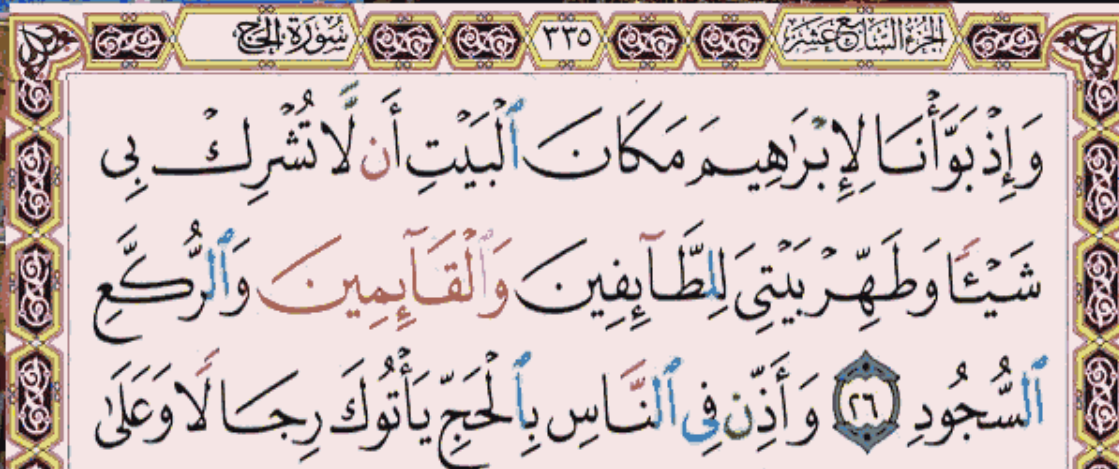 الجزء السابع عشر ٣٣٥ سورة الحج
وَإِذْ بَوَّأْنَا لِإِبْرَٰهِيمَ مَكَانَ ٱلْبَيْتِ أَن لَّا تُشْرِكْ بِى
شَيْـًٔا وَطَهِّرْ بَيْتِىَ لِلطَّآئِفِينَ وَٱلْقَآئِمِينَ وَٱلرُّكَّعِ
ٱلسُّجُودِ ٢٦ وَأَذِّن فِى ٱلنَّاسِ بِٱلْحَجِّ يَأْتُوكَ رِجَالًا وَعَلَىٰ